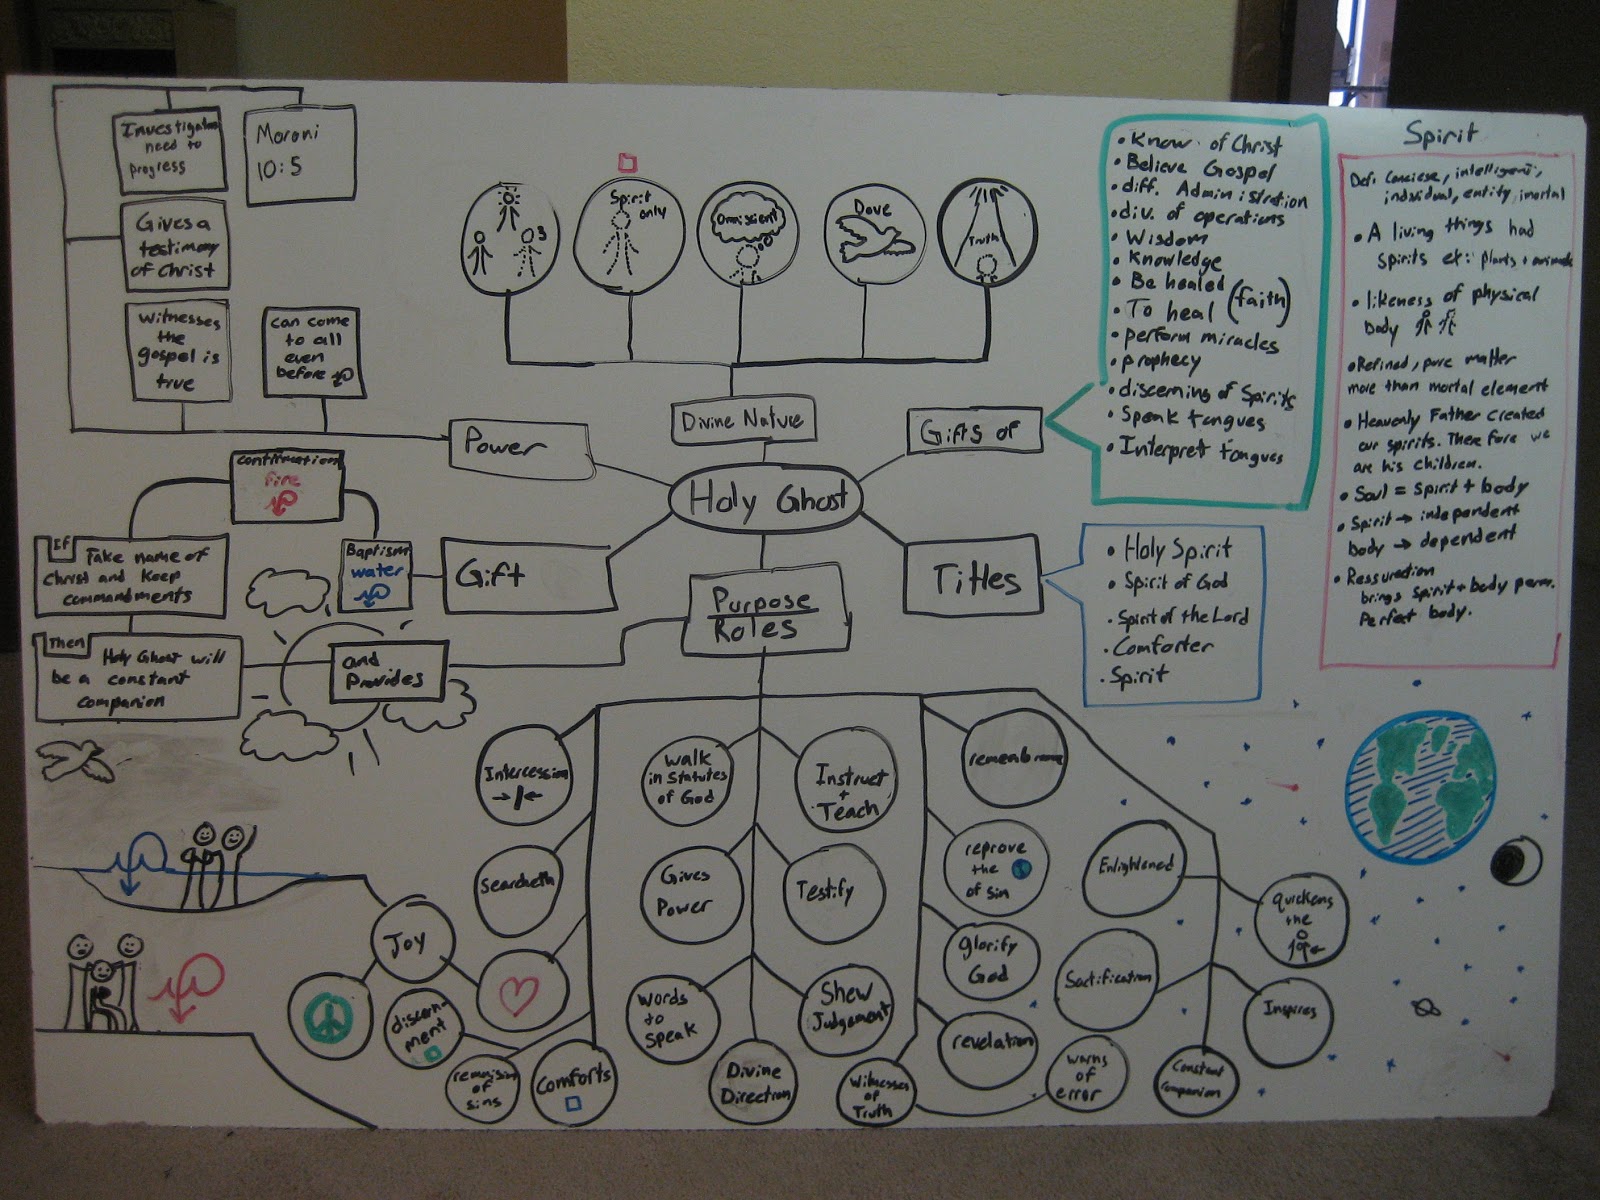 Investigators
need to
progress
Moroni
10:5
Gives a
testimony
of Christ
Witnesses
the
gospel is
true
can come
to all
even
before
Power
Spirit
only
Omniscient
Dove
Truth
Divine Nature
Gifts of
• Know of Christ
• Believe Gospel
• diff. Administration
• div. of operations
• Wisdom
• Knowledge
• Be healed
• To heal (faith)
• perform miracles
• prophecy
• discerning of Spirits
• Speak tongues
• Interpret tongues
Spirit
Def: Conciese, intelligent,
individual, entity, imortal
• A living things had
Spirits ex: plants + animals
• likeness of physical
body
• Refined, pure matter
more than mortal element
• Heavenly Father created
our spirits. There fore we
are his children.
• Soul = Spirit + body
• Spirit → independent
body → dependent
• Ressuration
brings Spirit + body perm.
Perfect body.
Holy Ghost
Confirmation
fire
If
Take name of
Christ and Keep
commandments
Baptism
water
Gift
Then
Holy Ghost will
be a constant
companion
and
Provides
Purpose
Roles
Titles
• Holy Spirit
• Spirit of God
• Spirit of the Lord
• Comforter
• Spirit
Intercession
→|←
Searcheth
Joy
discern-
ment
remmision
of
sins
Comforts
walk
in Statutes
of God
Instruct
+
Teach
Gives
Power
Testify
words
to
speak
Shew
Judgement
Divine
Direction
Witnesses
of
Truth
remembrance
reprove
the
of sin
glorify
God
revelation
warns
of
error
Enlightened
Quickens
the
Sactification
Inspires
Constant
companion